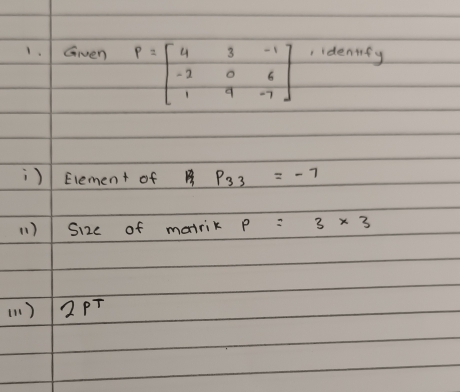 1. Given P = [ 4 3 -1 ] , identify
-2 0 6
1 9 -7
i) Element of P33 = -7
ii) Size of matrik P = 3 × 3
iii) 2PT